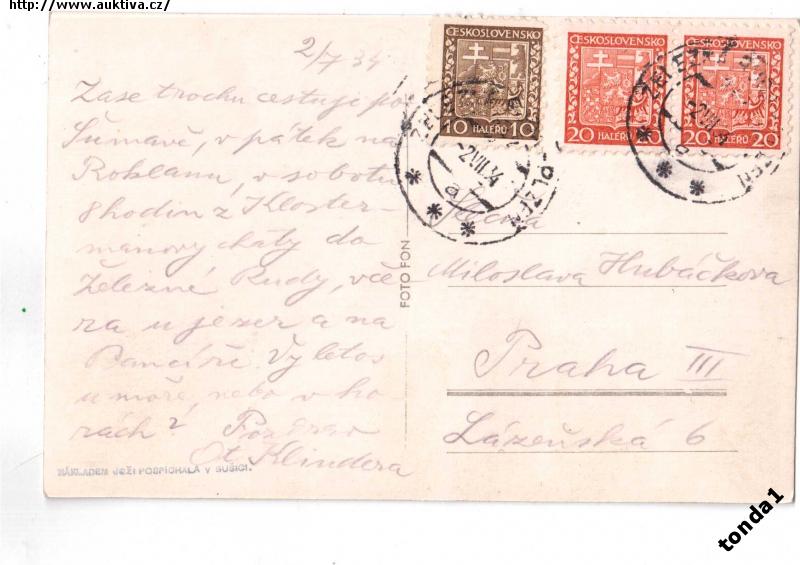 http://www.auktiva.cz/
2/7 34
Zase trochu cestuji po
Šumavě, v pátek na
Roklanu, v sobotu
8 hodin z Kloster-
manovy chaty do
Železné Rudy, vče-
ra u jezer a na
Pancíři. Vy letos
u moře, nebo v ho-
rách? Pozdrav
Ot. Klindera
NÁKLADEM JOŽI POSPÍCHALA V SUŠICI.
FOTO FON
ČESKOSLOVENSKO
10 HALÉŘŮ 10
ČESKOSLOVENSKO
20 HALÉŘŮ 20
ČESKOSLOVENSKO
20 HALÉŘŮ 20
2 VII 34
a
PLZEŇ
Miloslava Hubáčkova
Praha III
Lázeňská 6
tonda1